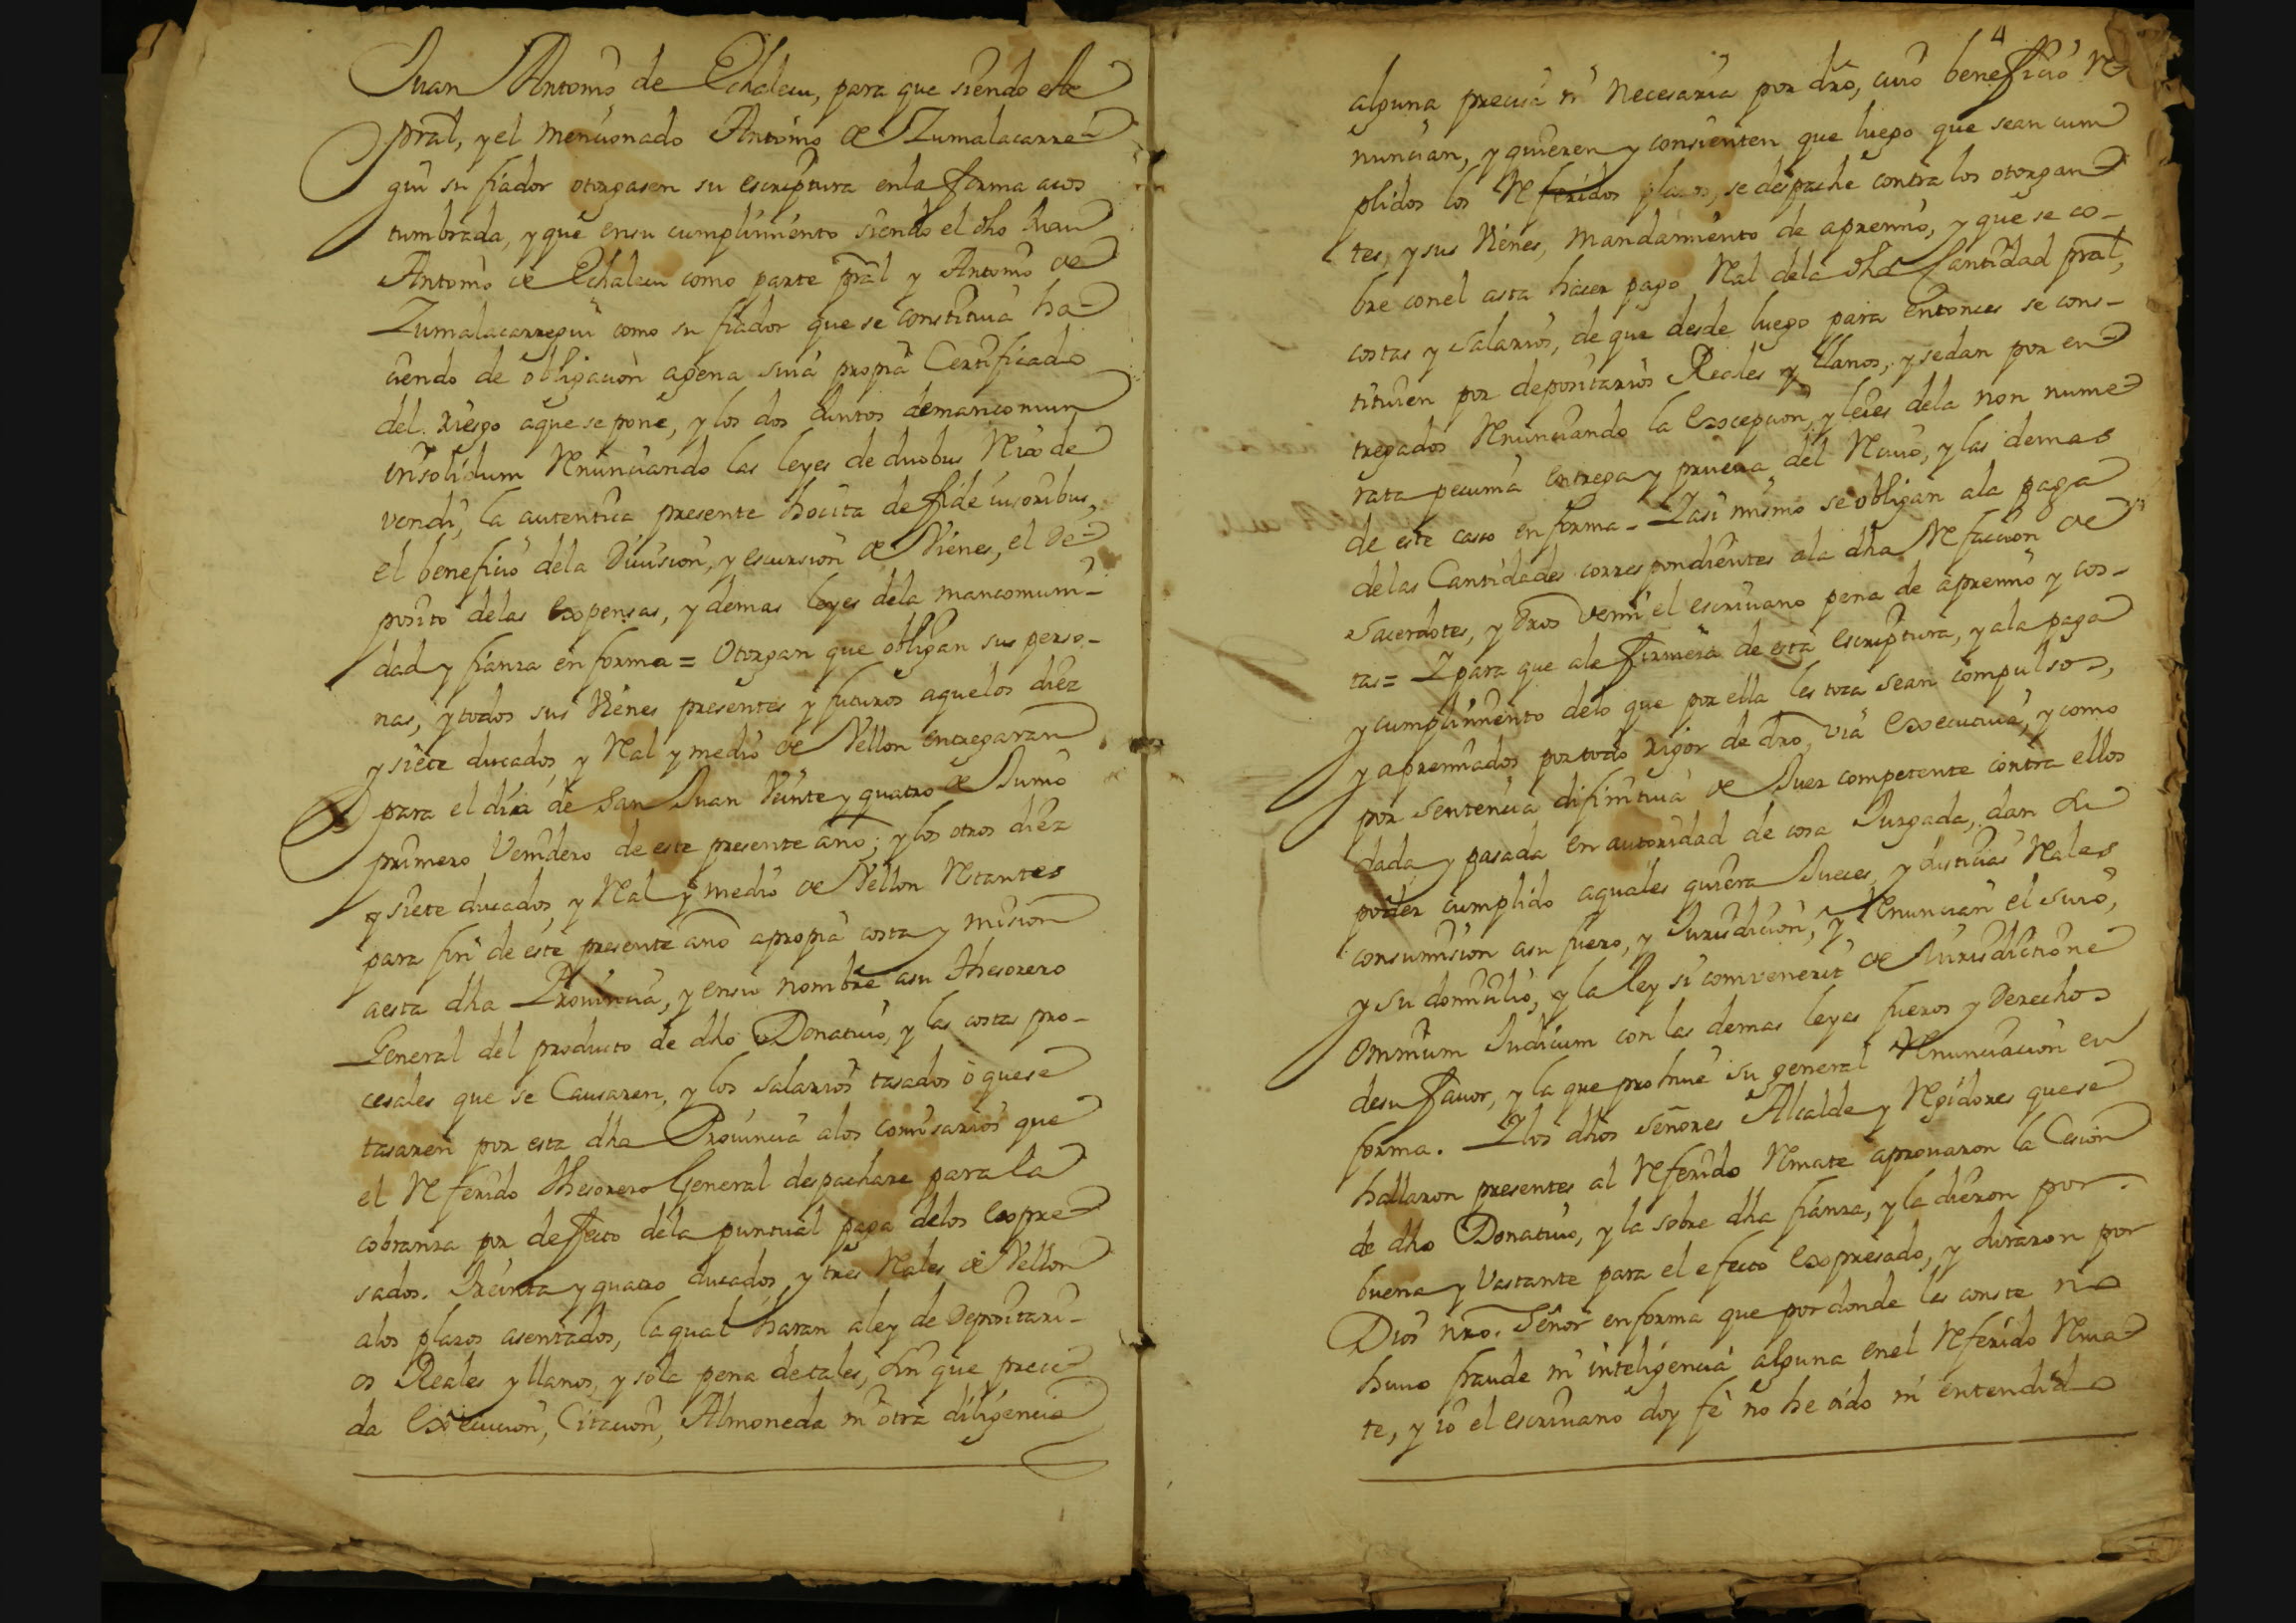 Juan Antonio de Echalecu, para que siendo este
pral, y el mencionado Antonio de Zumalacarre-
gui su fiador otorgasen su escriptura enla forma acos
tumbrada, y que ensu cumplimiento siendo el dho Juan
Antonio de Echalecu como parte pral y Antonio de
Zumalacarregui como su fiador que se constituia ha-
ciendo de obligacion agena suia propia Certificado
del riesgo aque se pone, y los dos Juntos demancomun
insolidum Renunciando las leyes de duobus Reix de
vendi, la autentica presente hocita de fide iusoribus,
el beneficio dela Diuision, y escursion de Vienes, el De-
posito delas Expensas, y demas leyes dela mancomuni-
dad y fianza en forma = Otorgan que obligan sus perso-
nas, y todos sus Vienes presentes y futuros aquelos diez
y siete ducados y Real y medio de Vellon entregaran
para el dia de San Juan Veinte y quatro de Junio
primero Venidero de este presente año; y los otros diez
y siete ducados, y Real y medio de Vellon Rtantes
para fin de este presente año apropia costa y mision
aesta dha Prouincia, y ensu nombre asu Thesorero
General del producto de dho Donatiuo, y las costas pro-
cesales que se Causaren, y los salarios tasados ò quese
tasaren por esta dha Prouincia alos comisarios que
el Referido Thesorero General despachare para la
cobranza por defecto dela puntual paga delos Expre-
sados. Treinta y quatro ducados, y tres Reales de Vellon
alos plazos asentados, la qual haran aley de Depositari-
os Reales y llanos, y sola pena de tales, sin que prece-
da Execucion, Citacion, Almoneda ni otra diligencia
4
alguna precisa ni necesaria por dro, cuio beneficio Re-
nuncian, y quieren y consienten que luego que sean cum
plidos los Referidos plazos, se despache contra los otorgan-
tes, y sus Vienes, Mandamiento de apremio, y que se co-
bre conel asta hacer pago Real dela dha Cantidad pral,
costas y Salarios, de que desde luego para entonces se cons-
tituien por depositarios Reales y llanos, y sedan por en-
tregados Renunciando la Excepcion, y leies dela non nume-
rata pecunia entrega y prueua del Reciuo, y las demas
de este caso en forma - Y asi mismo se obligan ala paga
delas Cantidades correspondientes ala dha Refaccion de
Sacerdotes, y dros demi el escriuano pena de apremio y cos-
tas = Y para que ala firmeza de esta escriptura, y ala paga
y cumplimiento delo que por ella les toca sean compulsos,
y apremiados por todo rigor de dro, via Executiua, y como
por Sentencia difinitiua de Juez competente contra ellos
dada y pasada en autoridad de cosa Juzgada, dan su
poder cumplido aquales quiera Jueces, y Justicias Reales
consumision asu fuero, y Jurisdicion, y Renuncian el suio,
y su domicilio, y la Ley si comvenerit de Jurisdictione
Omnium Judicum con las demas leyes fueros y Derechos
desu fauor, y la que prohiue su general Renunciacion en
forma. Y los dhos Señores Alcalde y Regidores quese
hallaron presentes al Referido Remate aprouaron la Cesion
de dho Donatiuo, y la sobre dha fianza, y la dieron por
buena y Vastante para el efecto Expresado, y Juraron por
Dios nro. Señor enforma que por donde les conste no
huuo fraude ni inteligencia alguna enel Referido Rema-
te, y io el escriuano doy fe no he oido ni entendido